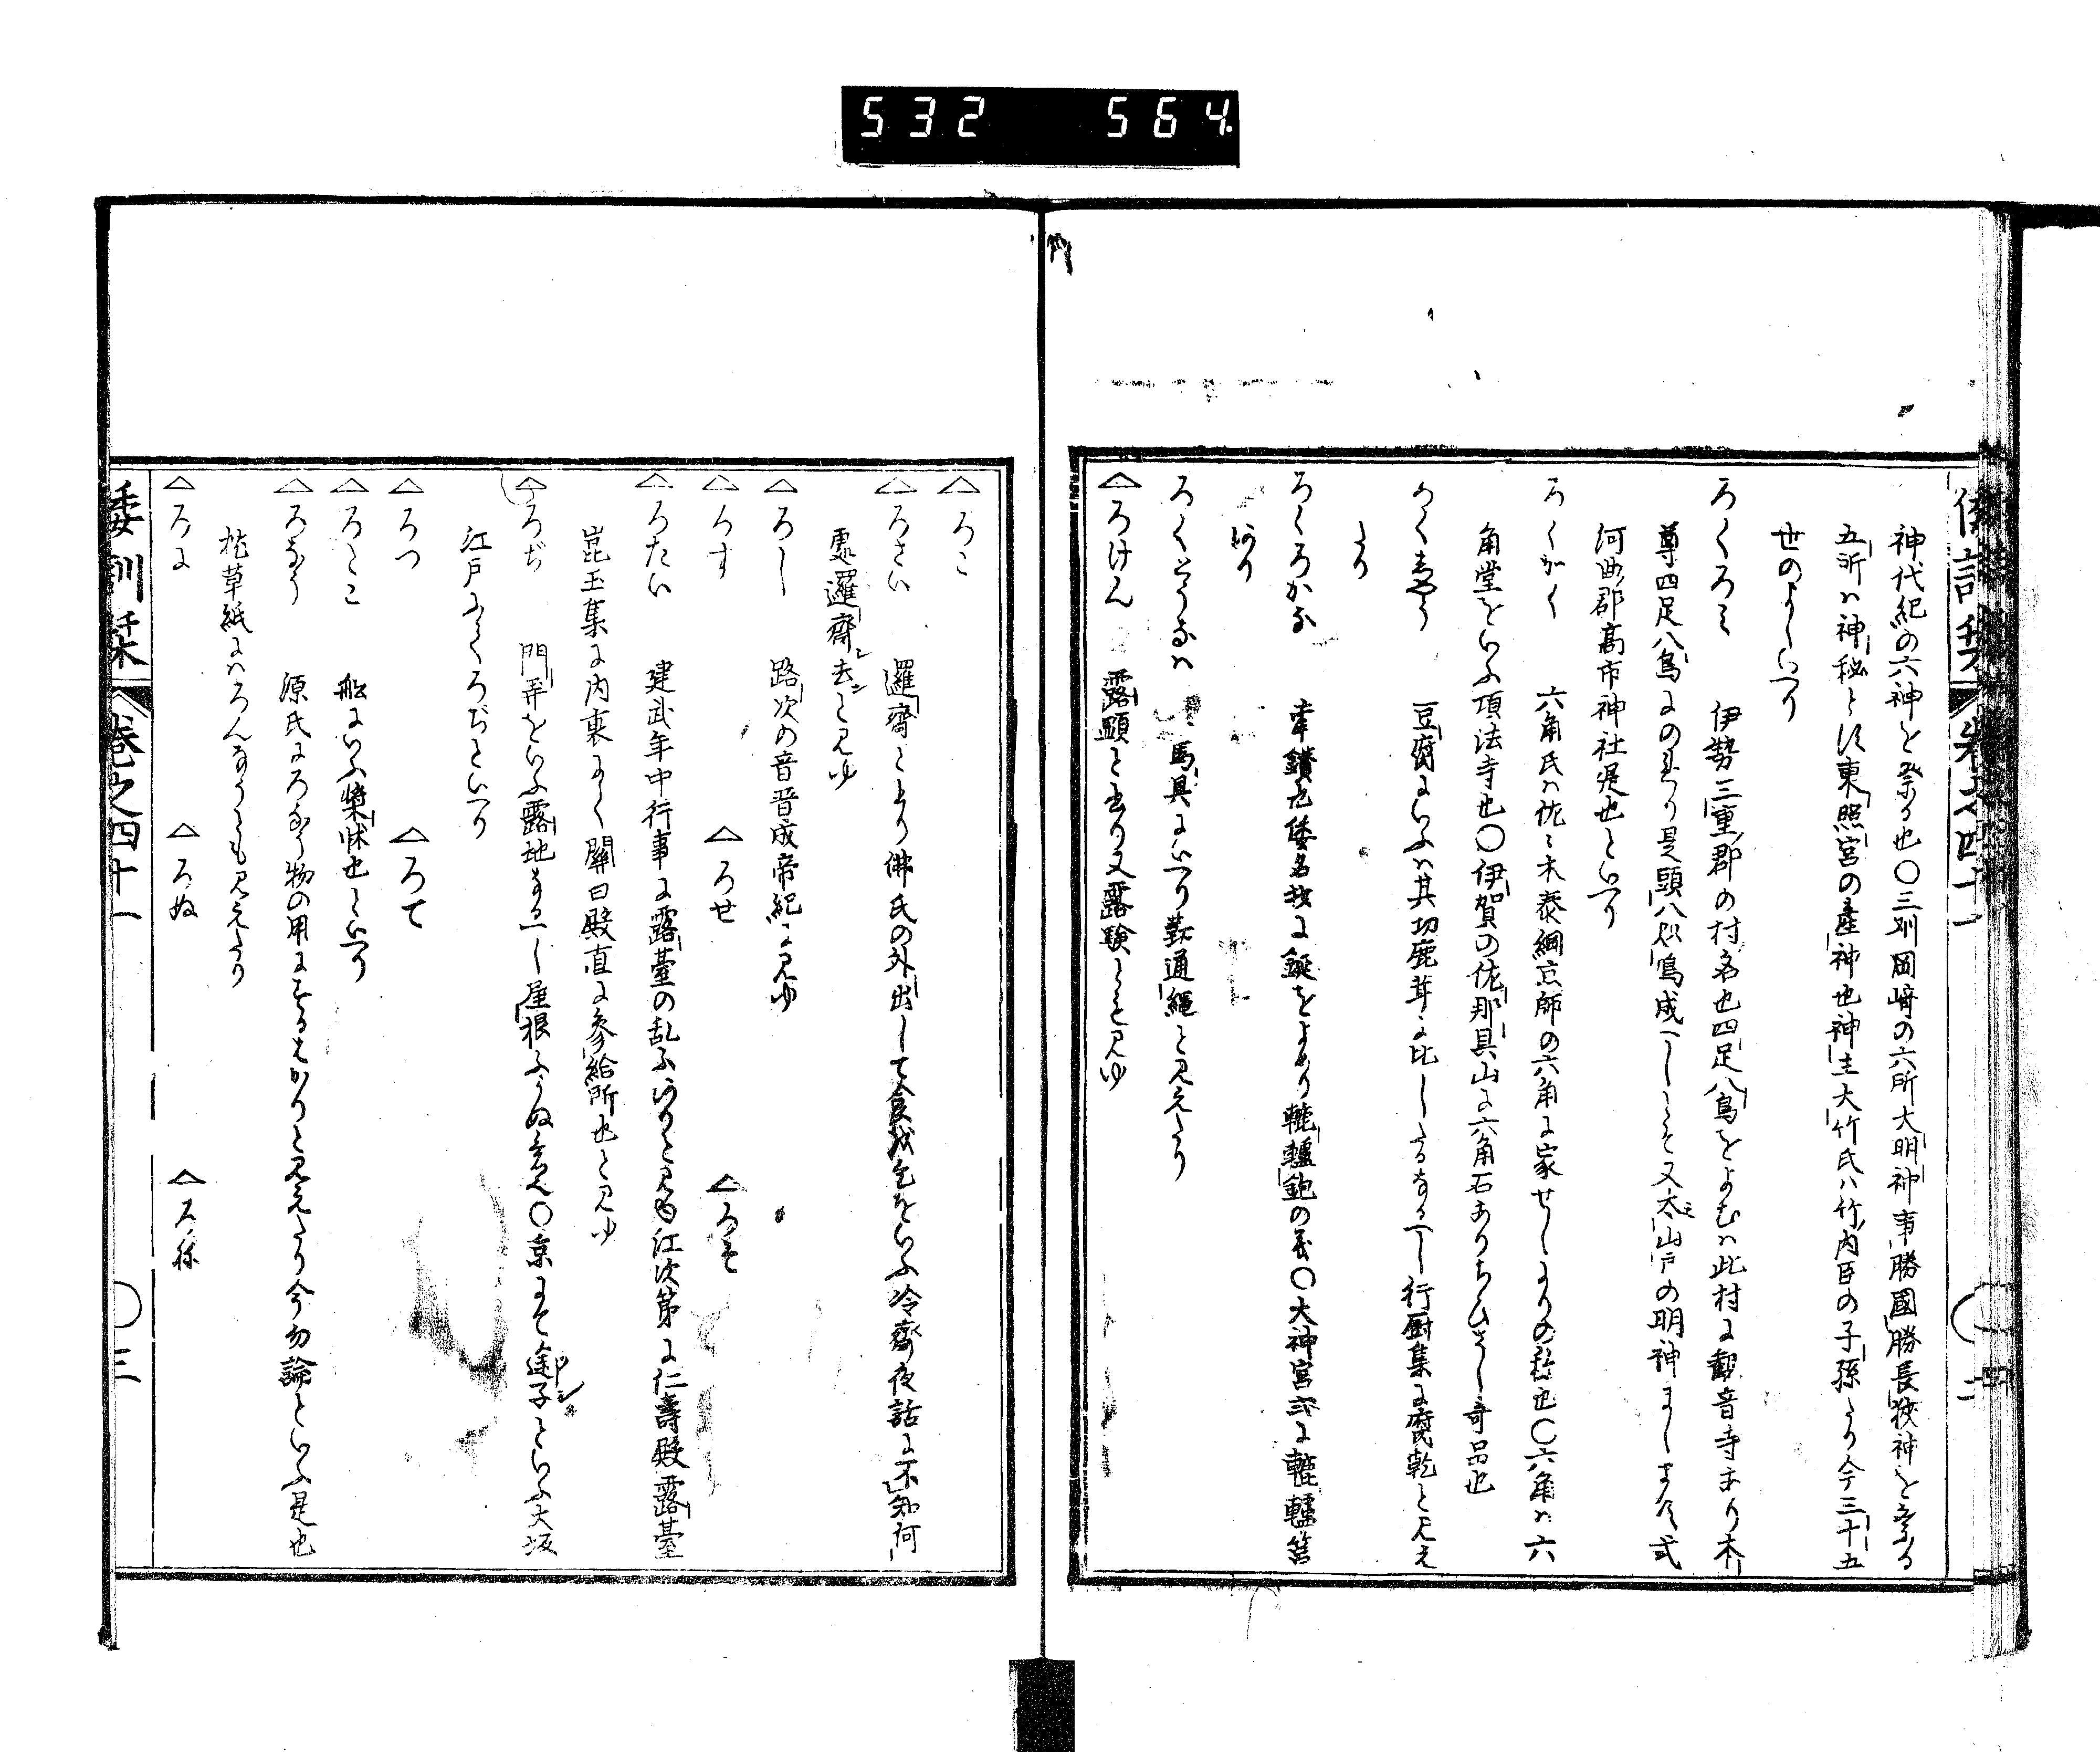 532 564
神代紀の六神を祭る也〇三州岡﨑の六所大明神事勝國勝長狹神を祭る
五所ハ神秘とす東照宮の産神也神主大竹氏ハ竹内臣の子孫たり今三十五
世のよしいへり
ろくろミ 伊勢三重郡の村名也四足八鳥をよむハ此村に觀音寺あり本
尊四足八鳥にのれり是頭八咫烏成へしとそ又太山戸の明神まします式
河曲郡高市神社是也といへり
ろくかく 六角氏ハ佐々木泰綱京師の六角に家せしよりの称也〇六角ハ六
角堂をいふ頂法寺也〇伊賀の佐那具山に六角石ありちひさし奇品也
ろくじよう 豆腐にいふハ其功鹿茸に比したるなるへし行厨集に腐乾と見え
たり
ろくろかな 牽鑽也倭名抄に鋋をよめり轆轤鉋の義〇大神宮式に轆轤筥
あり
ろくどうなハ 馬具にいへり䩞通繩と見えたり
△ろけん 露顯と書り又露験とも見ゆ
△ろこ
△ろさい 邏齋とかり佛氏の外出して食を乞をいふ冷齋夜話に不知何
處邏齋去と見ゆ
△ろし 路次の音晋成帝紀に見ゆ
△ろす △ろせ △ろそ
△ろたい 建武年中行事に露䑓の乱ふありと見ゆ江次第に仁壽殿露䑓
崑玉集に内裏にて關白殿直に參給所也と見ゆ
△ろぢ 門弄をいふ露地なるへし屋根ふかぬ意也〇京にて途子といふ大坂
江戸にてろぢといへり
△ろつ △ろて
△ろとこ 舩にいふ槳牀也といへり
△ろなう 源氏にろなう物の用にするはかりと見えたり今勿論といふ是也
枕草紙にハろんなうとも見えたり
△ろに △ろぬ △ろね
倭訓栞 卷之四十一 〇三